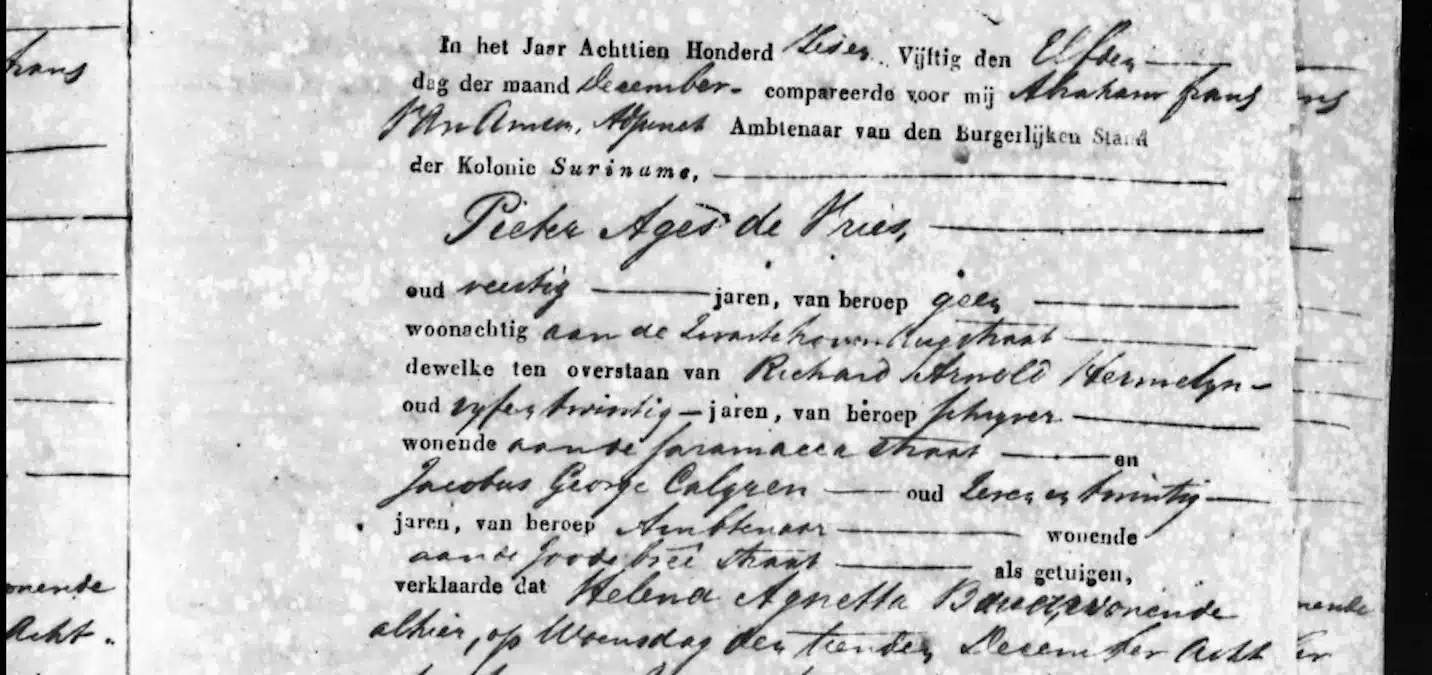 In het Jaar Achttien Honderd Zes en Vijftig den Elfden
dag der maand December compareerde voor mij Abraham frans
Van Amen, Adjunct Ambtenaar van den Burgerlijken Stand
der Kolonie Suriname,
Pieter Ages de Vries,
oud veertig jaren, van beroep geen
woonachtig aan de Zwartehovenbrugstraat
dewelke ten overstaan van Richard Arnold Hermelyn
oud vyf en twintig jaren, van beroep schryver
wonende aan de Saramacca straat en
Jacobus George Calgren oud Zeven en twintig
jaren, van beroep Ambtenaar wonende
aan de Joode breê straat als getuigen,
verklaarde dat Helena Agnetta wonende
alhier, op Woensdag den tienden December Acht
frans
onende
Acht